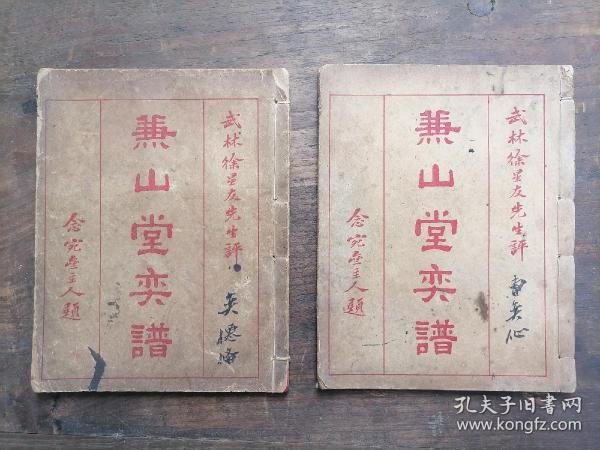 武林徐星友先生評
兼山堂奕譜
念宛齋主人題
武林徐星友先生評
兼山堂奕譜
念宛齋主人題
孔夫子旧书网
www.kongfz.com